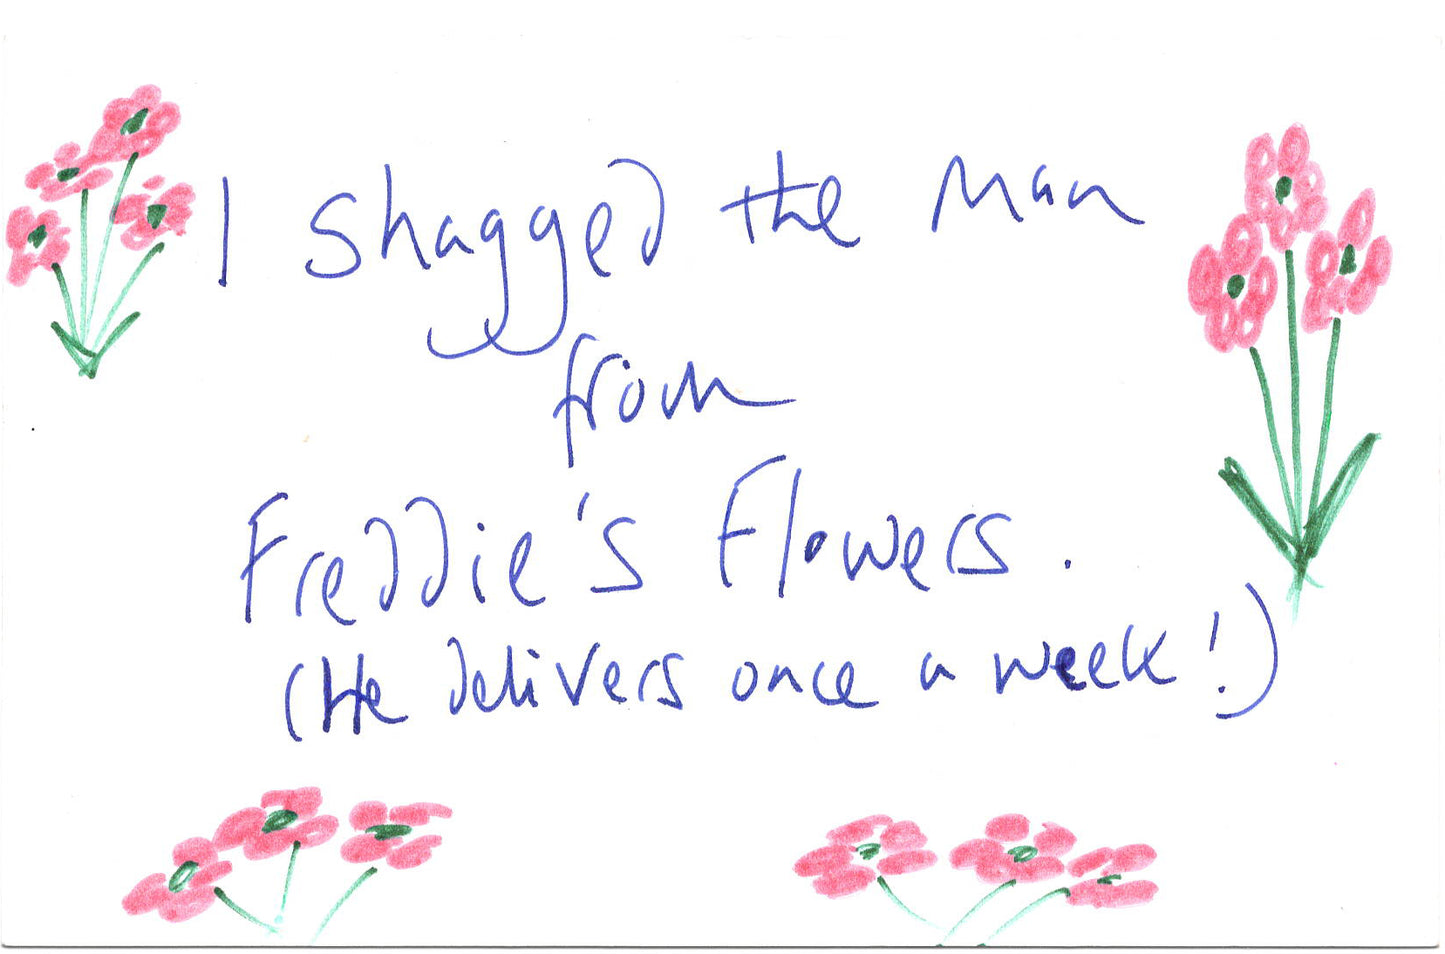 I shagged the man
from
Freddie's Flowers.
(He delivers once a week!)